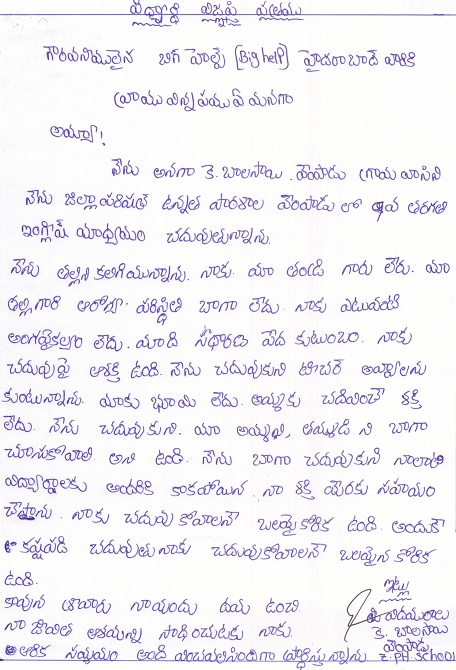 విద్యార్థి విజ్ఞప్తి పత్రము
గౌరవనీయులైన బిగ్ హెల్ప్ [Big help] హైదరాబాద్ వారికి
వ్రాయు విన్నపము ఏమనగా
అయ్యా!
నేను అనగా కె. బాలసాయి. వెంపాడు గ్రామ వాసిని
నేను జిల్లా పరిషత్ ఉన్నత పాఠశాల వెంపాడు లో తరగతి
ఇంగ్లీష్ మాధ్యమం చదువుతున్నాను.
నేను తల్లిని కలిగియున్నాను. నాకు మా తండ్రి గారు లేరు. మా
తల్లిగారి ఆరోగ్య పరిస్థితి బాగా లేదు. నాకు ఎటువంటి
అంగవైకల్యం లేదు. మాది సాధారణ పేద కుటుంబం. నాకు
చదువుపై ఆశక్తి ఉంది. నేను చదువుకుని టీచర్ అవ్వాలను
కుంటున్నాను. మాకు భూమి లేదు. అమ్మకు చదివించే శక్తి
లేదు. నేను చదువుకుని. మా అమ్మని, తమ్ముడి ని బాగా
చూసుకోవాలి అని ఉంది. నేను బాగా చదువుకుని నాలాంటి
విద్యార్థులకు అందరికి కాకపోయిన నా శక్తి మేరకు సహాయం
చేస్తాను. నాకు చదువు కోవాలనే బలమైన కోరిక ఉంది. అందుకే
కష్టపడి చదువుతు నాకు చదువుకోవాలనే బలమైన కోరిక
ఉంది.
కావున తమరు నాయందు దయ ఉంచి
నా జీవిత ఆశయాన్ని సాధించుటకు నాకు
ఆర్థిక సహాయం అందించవలసిందిగా ప్రార్థిస్తున్నాను
ఇట్లు
విధేయురాలు
కె. బాలసాయి
వెంపాడు
Z.P.H.School